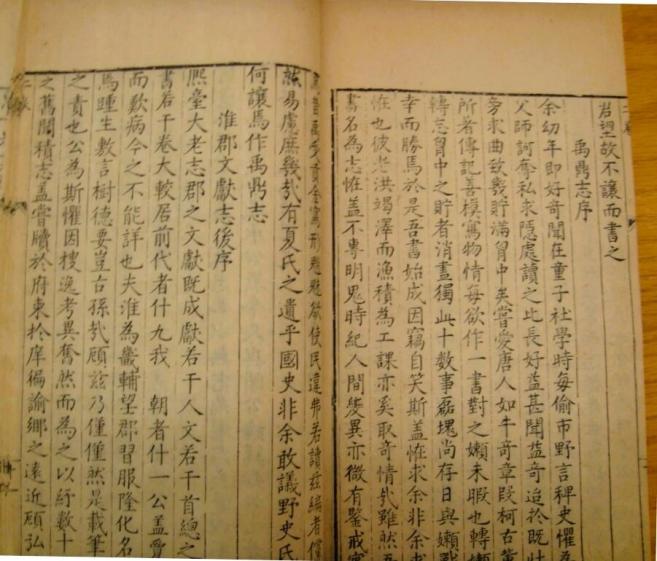 岩望故不讓而書之
禹鼎志序
余幼年即好奇聞在童子社學時每偷市野言稗史懼為
父師訶奪私求隱處讀之比長好益甚聞益奇迨於既壯
旁求曲致幾貯滿胷中矣嘗愛唐人如牛奇章段柯古輩
所著傳記善模寫物情每欲作一書對之嬾未暇也轉嬾
轉忘胷中之貯者消盡獨此十數事磊塊尚存日與嬾戰
幸而勝焉於是吾書始成因竊自笑斯蓋恠求余非余求
恠也彼老洪竭澤而漁積為工課亦奚取奇情哉雖然吾
書名為志恠蓋不專明鬼時紀人間變異亦微有鑒戒寓
焉昔禹受貢金寫形魑魅欲使民違弗若讀茲編者儻
易慮庶幾哉有夏氏之遺乎國史非余敢議野史氏
何讓焉作禹鼎志
淮郡文獻志後序
熈臺大老志郡之文獻既成獻若干人文若干首總之
書若干卷大較居前代者什九我 朝者什一公蓋覽
而歎病今之不能詳也夫淮為畿輔望郡習服隆化名
踵生數言樹德要豈古孫哉顧茲乃僅僅然是載筆
之責也公為斯懼因搜逸考異奮然而為之以紓數十
之舊聞積志蓋嘗牘於府東於庠徧諭鄉之遠近顧弘